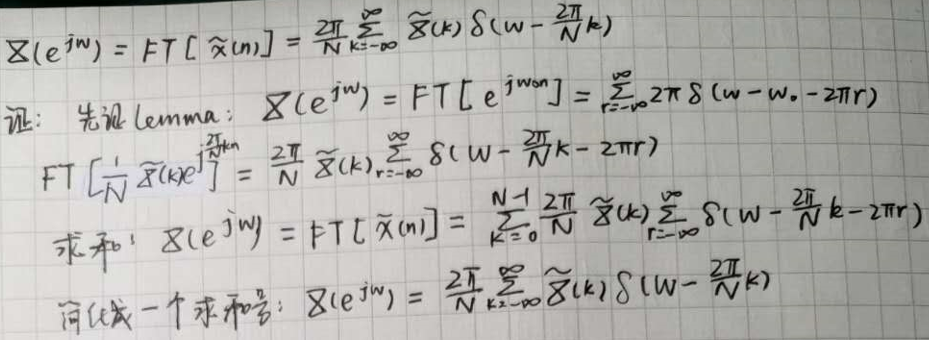 X(e^{jw}) = FT[x̃(n)] = \frac{2π}{N} \sum_{k=-∞}^{∞} X̃(k) δ(w - \frac{2π}{N}k)
证: 先证 lemma: X(e^{jw}) = FT[e^{jw₀n}] = \sum_{r=-∞}^{∞} 2π δ(w - w₀ - 2πr)
FT[\frac{1}{N} X̃(k)e^{j\frac{2π}{N}kn}] = \frac{2π}{N} X̃(k) \sum_{r=-∞}^{∞} δ(w - \frac{2π}{N}k - 2πr)
求和: X(e^{jw}) = FT[x̃(n)] = \sum_{k=0}^{N-1} \frac{2π}{N} X̃(k) \sum_{r=-∞}^{∞} δ(w - \frac{2π}{N}k - 2πr)
简化成一个求和号: X(e^{jw}) = \frac{2π}{N} \sum_{k=-∞}^{∞} X̃(k) δ(w - \frac{2π}{N}k)